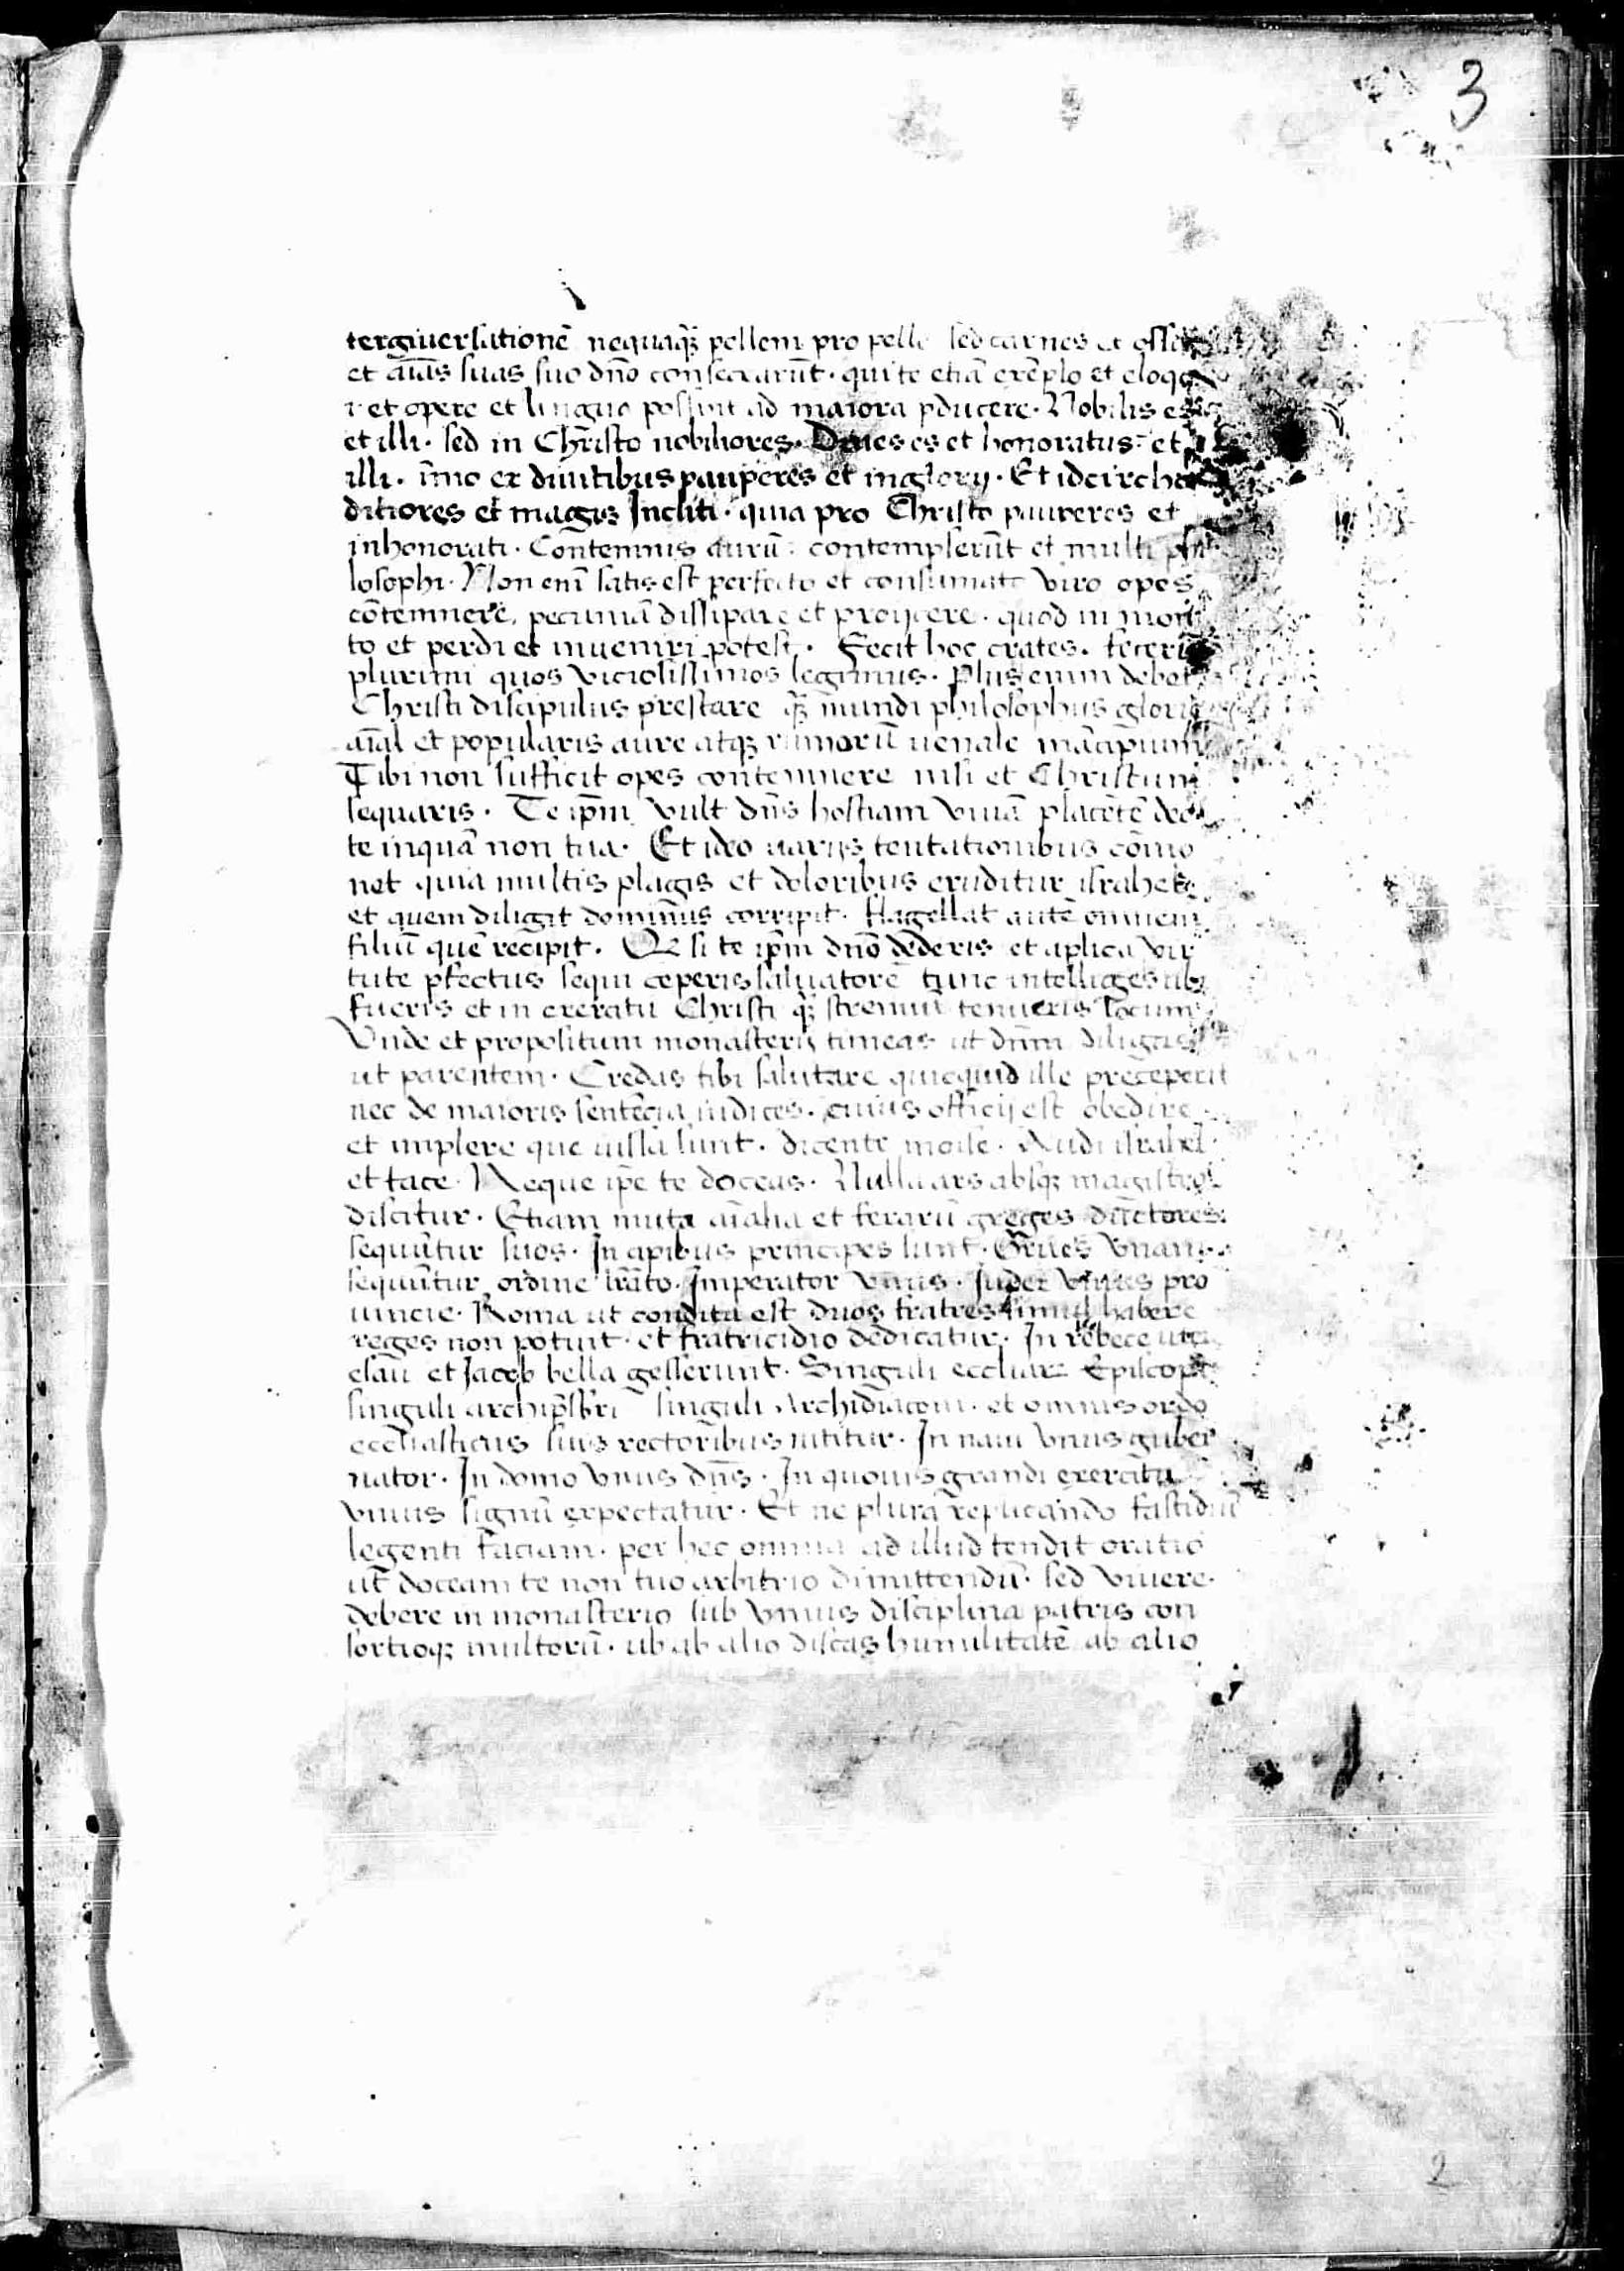 3
tergiuersationē nequaq̄ȝ pellem pro pelle sed carnes et ossa
et aīas suas suo dn̄o consecrarūt · qui te etiā exēplo et
et opere et lingua possint ad maiora ꝓducere · Nobilis es
et illi · sed in Chr̄isto nobiliores · Diues es et honoratus · et
illi · īmo ex diuitibus pauperes et inglorij · Et idcircho
ditiores et magis Incliti · quia pro Christo pauperes et
inhonorati · Contemnis aurū : contempserūt et multi
losophi · Non enī satis est perfecto et consumato viro opes
cōtemnere, pecuniā dissipare et proijcere · quod in mom
to et perdi et inueniri potest · Fecit hoc crates · fecerūt
plurimi quos viciosissimos legimus · Plus enim debet
Christi discipulus prestare q̄ȝ mundi philosophus glorie
aīal et popularis aure atqȝ rumorū uenale mācipium
Tibi non sufficit opes contemnere nisi et Christum
sequaris · Te ip̄m vult dn̄s hostiam viuā placētē deo
te inquā non tua · Et ideo uarijs tentationibus cōmo
net quia multis plagis et doloribus eruditur israhel
et quem diligit dominus corripit · flagellat autē omnem
filiū quē recipit · Qȝ si te ip̄m dn̄o dēderis et aplica vir
tute pfectus sequi ceperis saluatorē tunc intelliges ubi
fueris et in exercitu Christi q̄ȝ strenuū tenueris locum
Vnde et propositum monasterij timeas ut dn̄m diligas
ut parentem · Credas tibi salutare quicquid ille preceperit
nec de maioris sentēcia iudices · cuius officij est obedire
et implere que iussa sunt · dicente moise · Audi israhel
et tace · Neque ip̄e te doceas · Nulla ars absqȝ magistro
discitur · Etiam muta aīalia et ferarū greges ductores
sequūtur suos · In apibus principes sunt · Grues vnam
sequūtur ordine lrāto · Imperator vnus · Iudex vnus pro
uincie · Roma ut condita est duos fratres simul habere
reges non potuit · et fratricidio dedicatur · In rebece utero
esau et Jacob bella gesserunt · Singuli eccliarȝ Episcopi
singuli archipsbr̄i singuli Archidiaconi · et omnis ordo
ecclīasticus suis rectoribus nititur · In naui vnus guber
nator · In domo vnus dn̄s · In quouis grandi exercitu
vnius signū expectatur · Et ne plura replicando fastidiū
legenti faciam · per hec omnia ad illud tendit oratio
ut doceam te non tuo arbitrio dimittendū · sed viuere
debere in monasterio sub vnius disciplina patris con
sortioqȝ multorū · ub ab alio discas humilitatē ab alio
2